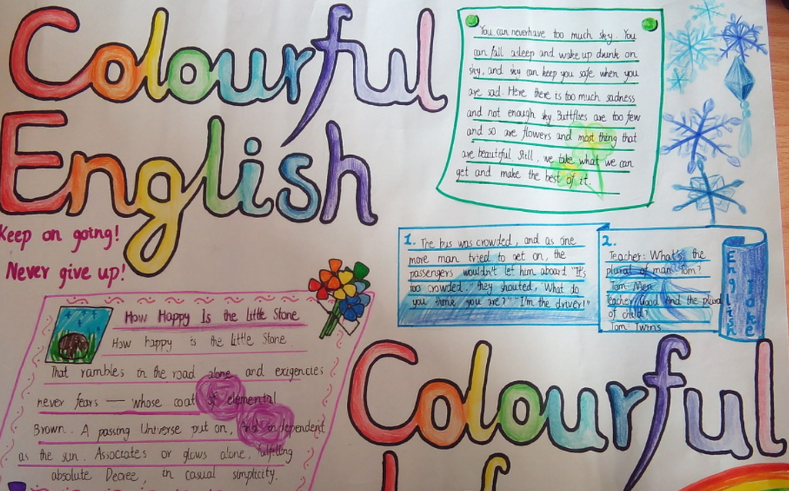 Colourful
English
Keep on going!
Never give up!
You can neverhave too much sky. You
can fall asleep and wake up drunk on
sky, and sky can keep you safe when you
are sad. Here there is too much sadness
and not enough sky. Buttflies are too few
and so are flowers and most thing that
are beautiful. Still, we take what we can
get and make the best of it.
1. The bus was crowded, and as one
more man tried to get on, the
passengers wouldn't let him aboard "It's
too crowded," they shouted, What do
you think you are?" "I'm the driver!"
2.
Teacher: What's the
plural of man Tom?
Tom Men
Teacher: Good And the plural
of child?
Tom Twins
English
Joke
How Happy Is the Little Stone
How happy is the Little Stone
That rambles in the road alone and exigencies
never fears — whose coat of elemental
Brown. A passing Universe put on, And independent
as the sun. Associates or glows alone, fulfilling
absolute Decree, in casual simplicity.
Colourful